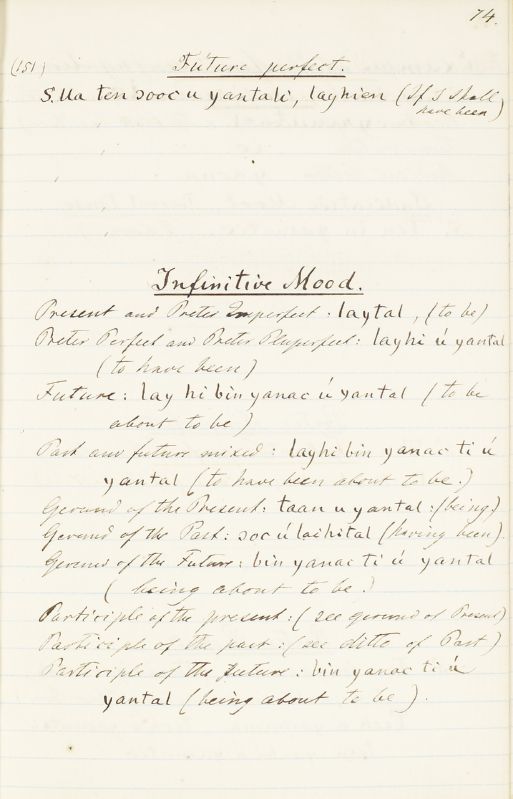 74.
(151) Future perfect.
S. Ua ten sooc u yantali, layhien (If I shall
have been)
Infinitive Mood.
Present and Preter Imperfect: laytal, (to be)
Preter Perfect and Preter Pluperfect: layhi ú yantal
(to have been)
Future: lay hi bin yanac ú yantal (to be
about to be)
Past and future mixed: layhi bin yanac ti ú
yantal (to have been about to be.)
Gerund of the Present: taan u yantal: (being)
Gerund of the Past: soc ú laihital (having been).
Gerund of the Future: bin yanac ti ú yantal
(being about to be.)
Participle of the present: (see gerund of Present)
Participle of the past: (see ditto of Past)
Participle of the future: bin yanac ti ú
yantal (being about to be).